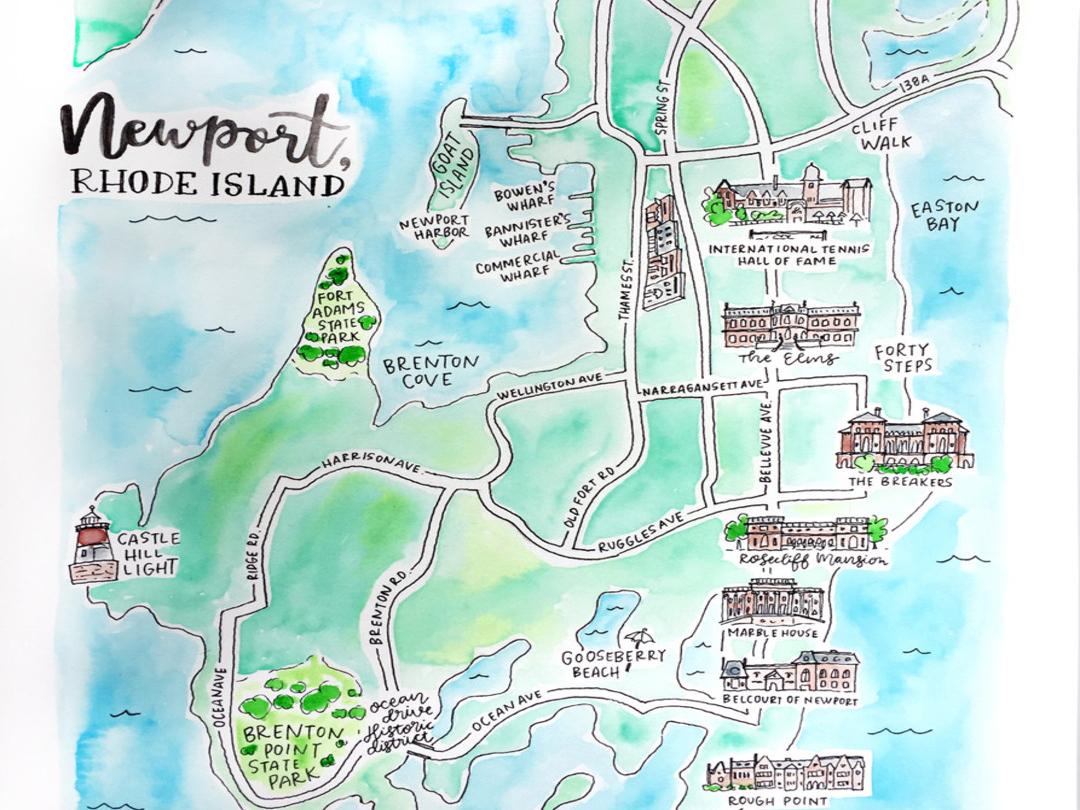 Newport,
RHODE ISLAND
138A
SPRING ST
CLIFF
WALK
GOAT
ISLAND
BOWEN'S
WHARF
NEWPORT
HARBOR
BANNISTER'S
WHARF
COMMERCIAL
WHARF
EASTON
BAY
INTERNATIONAL TENNIS
HALL OF FAME
THAMES ST.
FORT
ADAMS
STATE
PARK
BRENTON
COVE
The Elms
FORTY
STEPS
WELLINGTON AVE
NARRAGANSETT AVE
BELLEVUE AVE.
HARRISON AVE.
THE BREAKERS
OLD FORT RD
RUGGLES AVE
CASTLE
HILL
LIGHT
RIDGE RD.
Rosecliff Mansion
BRENTON RD.
MARBLE HOUSE
GOOSEBERRY
BEACH
OCEAN AVE
BELCOURT OF NEWPORT
OCEAN AVE
ocean
drive
Historic
district
BRENTON
POINT
STATE
PARK
ROUGH POINT